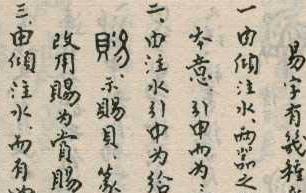 易字有幾種
一由傾注水、兩器之
本意引申而为
二、由注水引申为给
賜、示賜貝、
改用賜为賞賜
三、由傾注水、而有